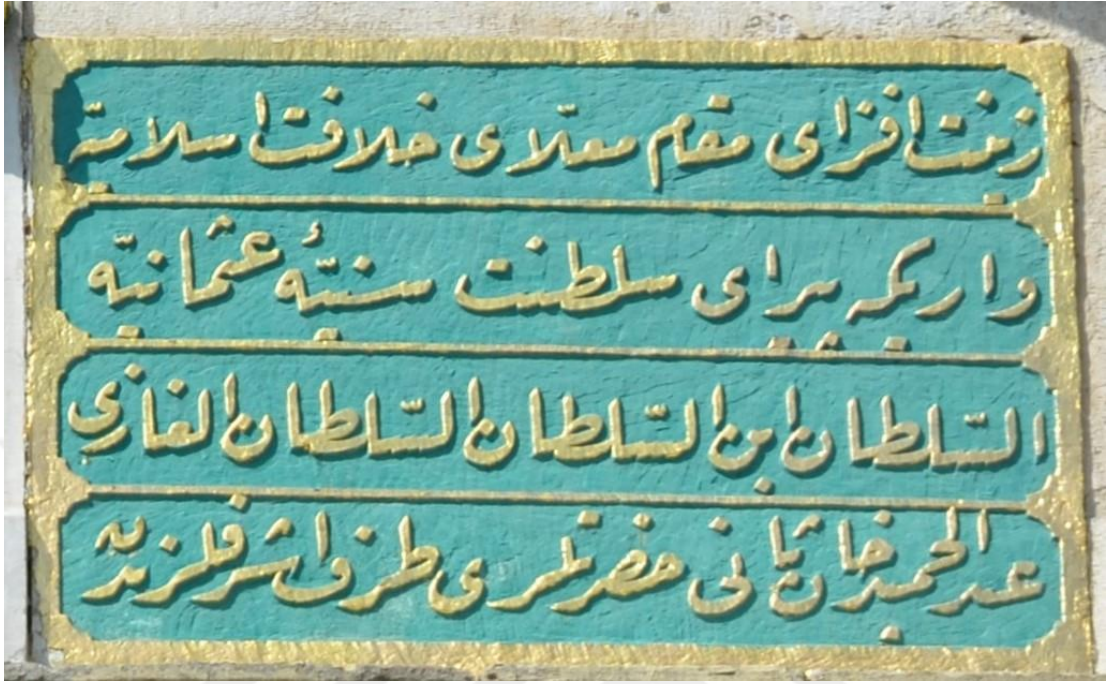 زينت افزاى مقام معلّاى خلافت اسلاميّه
واريكه پيراى سلطنت سنيّهٔ عثمانيّه
السّلطان ابن السّلطان السّلطان الغازى
عبد الحميد خان ثانى حضرتلرى طرف اشرفلرندن